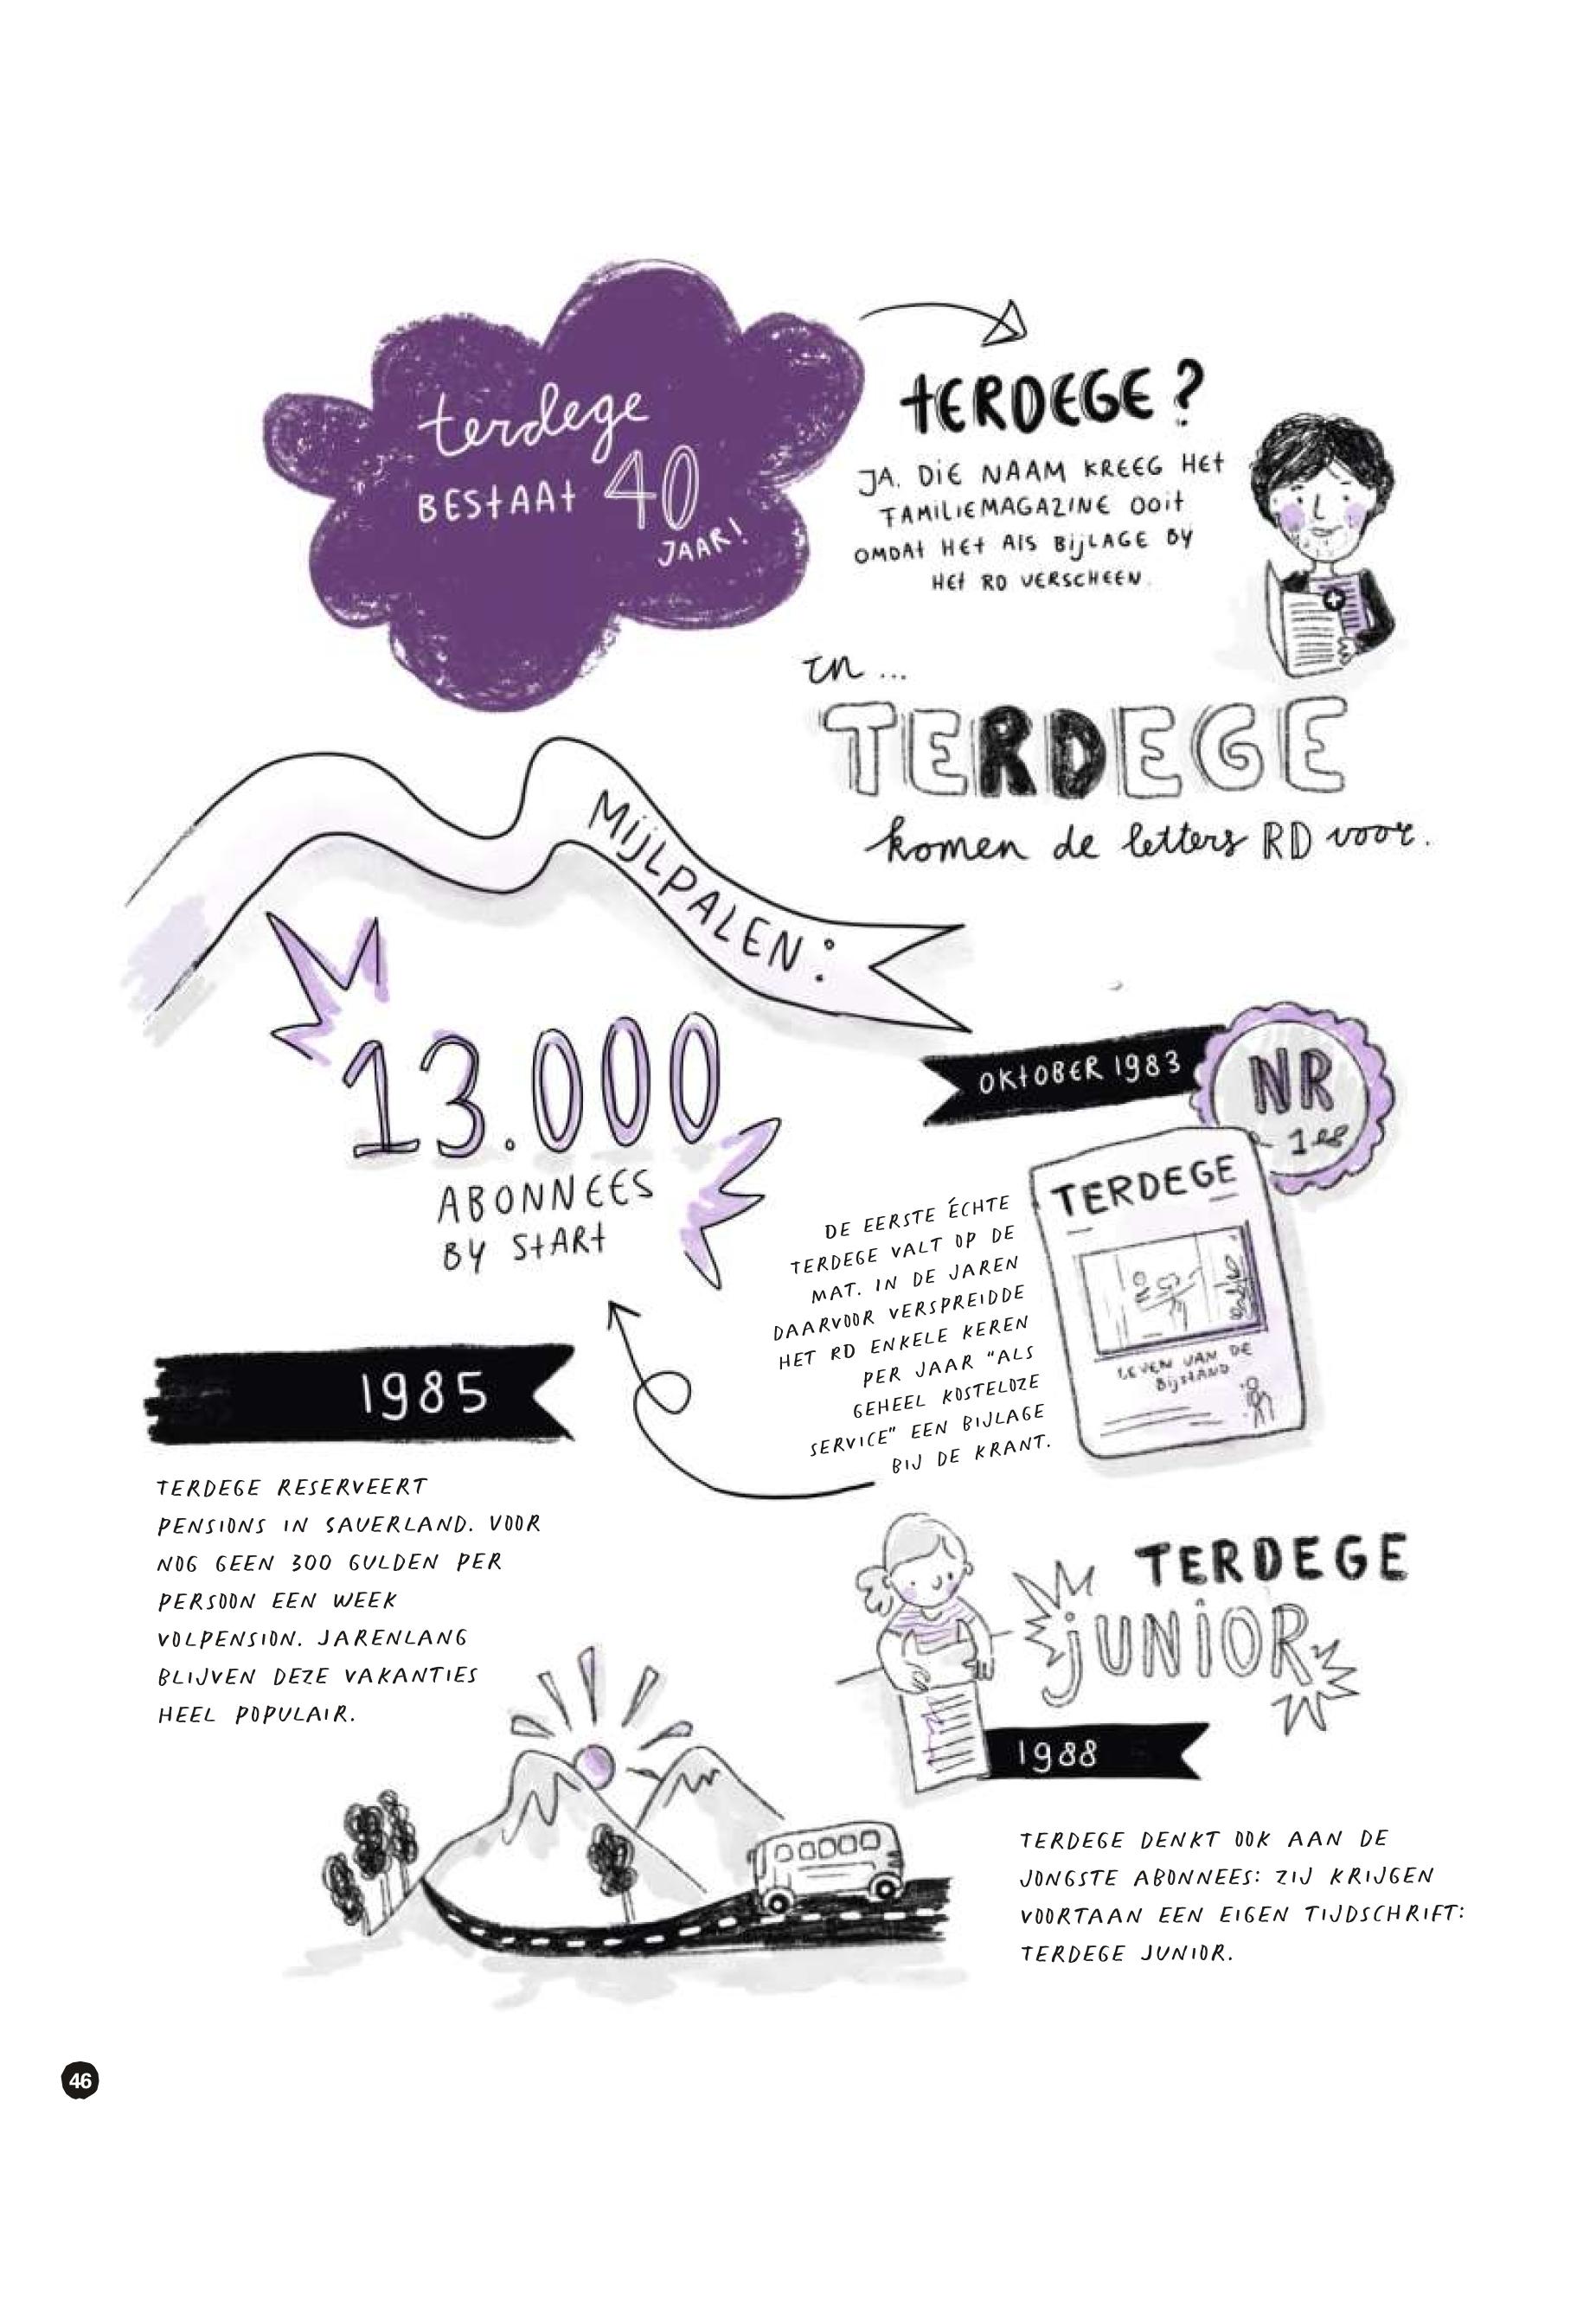 terdege
BESTAAT 40
JAAR!
TERDEGE?
JA. DIE NAAM KREEG HET
FAMILIEMAGAZINE OOIT
OMDAT HET ALS BIJLAGE BY
HET RD VERSCHEEN.
in...
TERDEGE
komen de letters RD voor.
MIJLPALEN:
13.000
ABONNEES
BY START
OKTOBER 1983
NR
1
TERDEGE
LEVEN VAN DE
BIJSTAND
DE EERSTE ÉCHTE
TERDEGE VALT OP DE
MAT. IN DE JAREN
DAARVOOR VERSPREIDDE
HET RD ENKELE KEREN
PER JAAR "ALS
GEHEEL KOSTELOZE
SERVICE" EEN BIJLAGE
BIJ DE KRANT.
1985
TERDEGE RESERVEERT
PENSIONS IN SAUERLAND. VOOR
NOG GEEN 300 GULDEN PER
PERSOON EEN WEEK
VOLPENSION. JARENLANG
BLIJVEN DEZE VAKANTIES
HEEL POPULAIR.
TERDEGE
JUNIOR
1988
TERDEGE DENKT OOK AAN DE
JONGSTE ABONNEES: ZIJ KRIJGEN
VOORTAAN EEN EIGEN TIJDSCHRIFT:
TERDEGE JUNIOR.
46